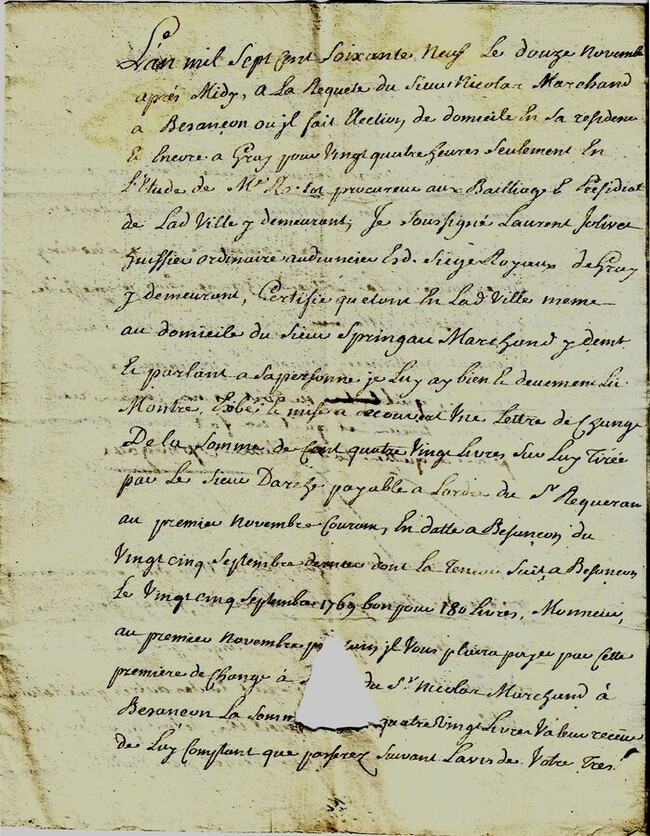 L'an mil Sept Cent Soixante Neuf Le douze Novembre
après Midy, a La Requete du Sieur Nicolas Marchand
a Besançon ou jl fait Election de domicile En sa residence
Et Encore a Gray pour Vingt quatre heures Seulement En
l'Etude de Me procureur aux Bailliage Et Présidial
de Lad Ville y demeurant, Je Soussigné Laurent Jolivet
huissier ordinaire audiancier Esd. Siege Royaux de Gray
y demeurant, Certifie qu'etant En Lad Ville meme
au domicile du Sieur Springau Marchand y demt
Et parlant a sa personne je Luy ay bien Et deuement
Montré, Exhibé Et mise a decouvert Une Lettre de Change
De la Somme de Cent quatre Vingt Livres Sur Luy Tirée
par Le Sieur Darche payable a Lordre du Sr Requerant
au premier Novembre Courant, En datte a Besançon du
Vingt cinq Septembre dernier dont la Teneur Suit, a Besançon
Le Vingt cinq Septembre 1769 bon pour 180 Livres, Monsieur,
au premier Novembre jl Vous plaira payer par Cette
premiere de Change à du Sr Nicolas Marchand à
Besançon La Somme quatre Vingt Livres Valeur receüe
de Luy Comptant que passerez Suivant Lavis de Votre Tres